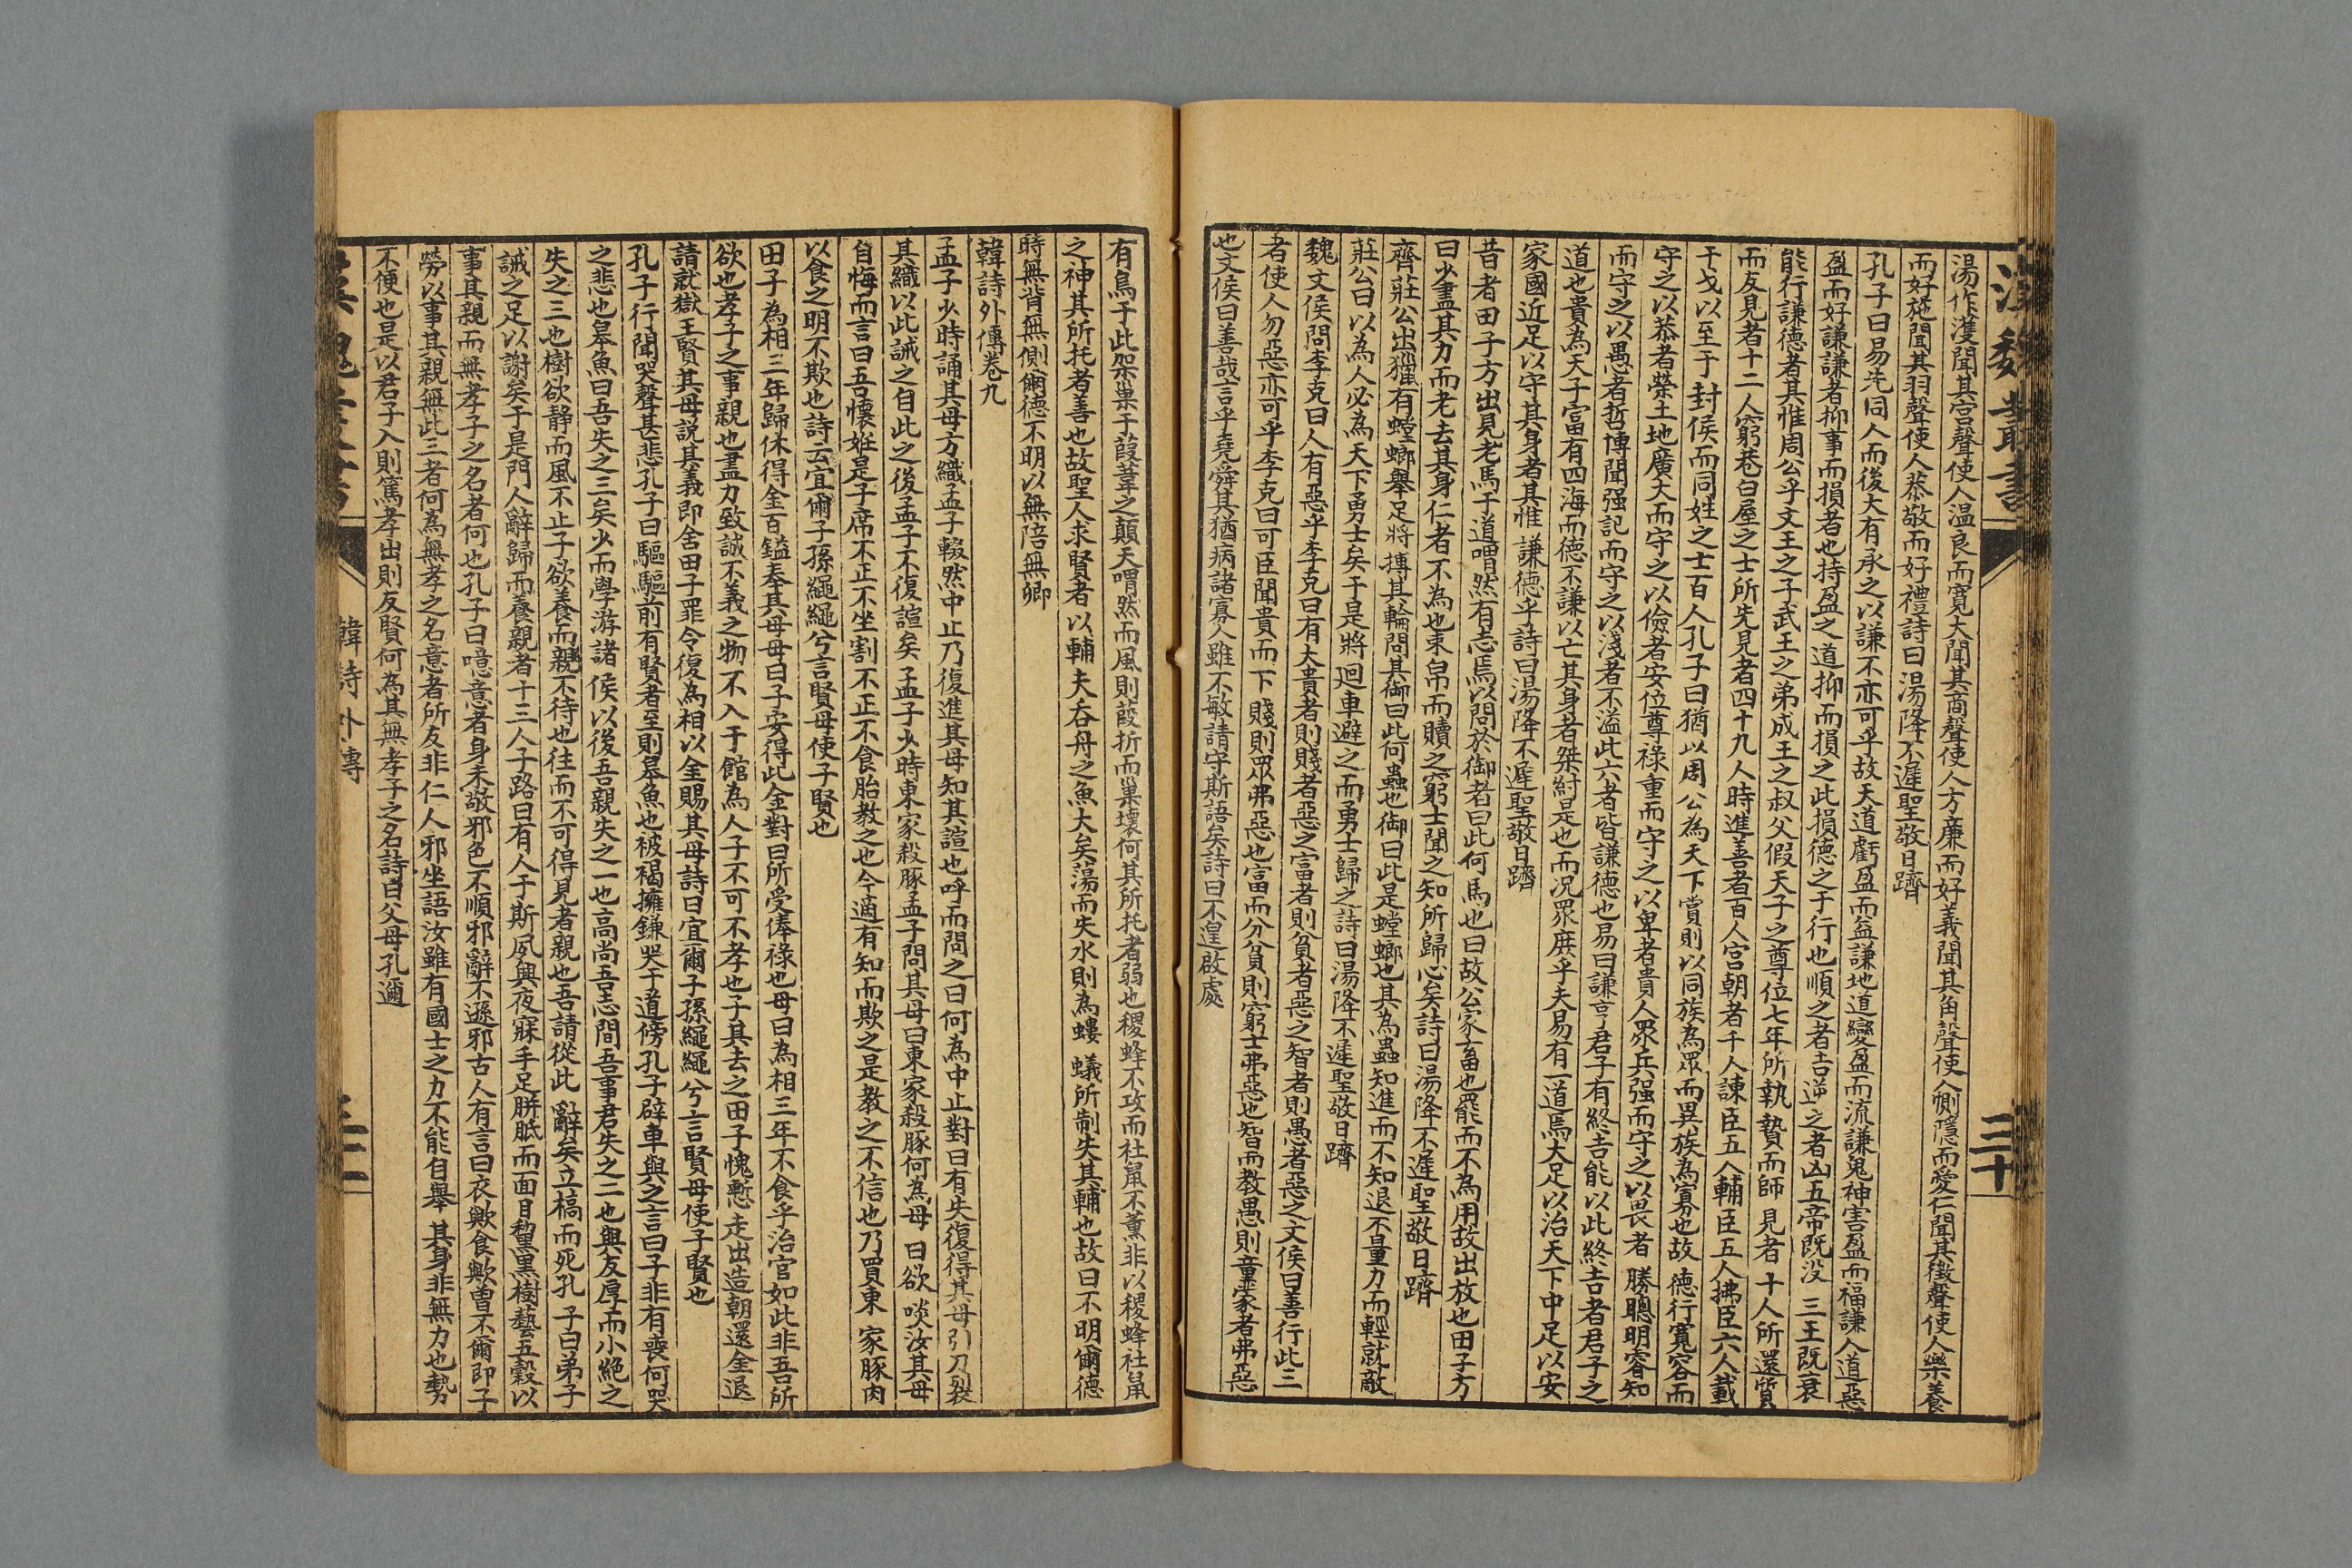 漢魏叢書
三十
湯作濩聞其宮聲使人溫良而寬大聞其商聲使人方廉而好義聞其角聲使人惻隱而愛仁聞其徵聲使人樂養
而好施聞其羽聲使人恭敬而好禮詩曰湯降不遲聖敬日躋
孔子曰易先同人而後大有承之以謙不亦可乎故天道虧盈而益謙地道變盈而流謙鬼神害盈而福謙人道惡
盈而好謙謙者抑事而損者也持盈之道抑而損之此損德之于行也順之者吉逆之者凶五帝既没三王既衰
能行謙德者其惟周公乎文王之子武王之弟成王之叔父假天子之尊位七年所執贄而師見者十人所還質
而友見者十二人窮巷白屋之士所先見者四十九人時進善者百人宮朝者千人諫臣五人輔臣五人拂臣六人載
干戈以至于封侯而同姓之士百人孔子曰猶以周公為天下賞則以同族為眾而異族為寡也故德行寬容而
守之以恭者榮土地廣大而守之以儉者安位尊祿重而守之以卑者貴人眾兵强而守之以畏者勝聰明睿知
而守之以愚者哲博聞强記而守之以淺者不溢此六者皆謙德也易曰謙亨君子有終吉能以此終吉者君子之
道也貴為天子富有四海而德不謙以亡其身者桀紂是也而况眾庶乎夫易有一道焉大足以治天下中足以安
家國近足以守其身者其惟謙德乎詩曰湯降不遲聖敬日躋
昔者田子方出見老馬于道喟然有志焉以問於御者曰此何馬也曰故公家畜也罷而不為用故出放也田子方
曰少盡其力而老去其身仁者不為也束帛而贖之窮士聞之知所歸心矣詩曰湯降不遲聖敬日躋
齊莊公出獵有螳螂舉足將摶其輪問其御曰此何蟲也御曰此是螳螂也其為蟲知進而不知退不量力而輕就敵
莊公曰以為人必為天下勇士矣于是將迴車避之而勇士歸之詩曰湯降不遲聖敬日躋
魏文侯問李克曰人有惡乎李克曰有夫貴者則賤者惡之富者則貧者惡之智者則愚者惡之文侯曰善行此三
者使人勿惡亦可乎李克曰可臣聞貴而下賤則眾弗惡也富而分貧則窮士弗惡也智而教愚則童蒙者弗惡
也文侯曰善哉言乎堯舜其猶病諸寡人雖不敏請守斯語矣詩曰不遑啟處
有鳥于此架巢于葭葦之顛天喟然而風則葭折而巢壞何其所托者弱也稷蜂不攻而社鼠不薰非以稷蜂社鼠
之神其所托者善也故聖人求賢者以輔夫吞舟之魚大矣湯而失水則為螻蟻所制失其輔也故曰不明爾德
時無背無側爾德不明以無陪無卿
韓詩外傳卷九
孟子少時誦其母方織孟子輟然中止乃復進其母知其諠也呼而問之曰何為中止對曰有失復得其母引刀裂
其織以此誡之自此之後孟子不復諠矣孟子少時東家殺豚孟子問其母曰東家殺豚何為母曰欲啖汝其母
自悔而言曰吾懷姙是子席不正不坐割不正不食胎教之也今適有知而欺之是教之不信也乃買東家豚肉
以食之明不欺也詩云宜爾子孫繩繩兮言賢母使子賢也
田子為相三年歸休得金百鎰奉其母母曰子安得此金對曰所受俸祿也母曰為相三年不食乎治官如此非吾所
欲也孝子之事親也盡力致誠不義之物不入于館為人子不可不孝也子其去之田子愧慙走出造朝還金退
請就獄王賢其母說其義即舍田子罪令復為相以金賜其母詩曰宜爾子孫繩繩兮言賢母使子賢也
孔子行聞哭聲甚悲孔子曰驅驅前有賢者至則皋魚也被褐擁鎌哭于道傍孔子辟車與之言曰子非有喪何哭
之悲也皋魚曰吾失之三矣少而學游諸侯以後吾親失之一也高尚吾志間吾事君失之二也與友厚而小絕之
失之三也樹欲静而風不止子欲養而親不待也往而不可得見者親也吾請從此辭矣立槁而死孔子曰弟子
誡之足以謝矣于是門人辭歸而養親者十三人子路曰有人于斯夙興夜寐手足胼胝而面目黧黑樹藝五穀以
事其親而無孝子之名者何也孔子曰噫意者身未敬邪色不順邪辭不遜邪古人有言曰衣歟食歟曾不爾即子
勞以事其親無此三者何為無孝之名意者所友非仁人邪坐語汝雖有國士之力不能自舉其身非無力也勢
不便也是以君子入則篤孝出則友賢何為其無孝子之名詩曰父母孔邇
韓詩外傳